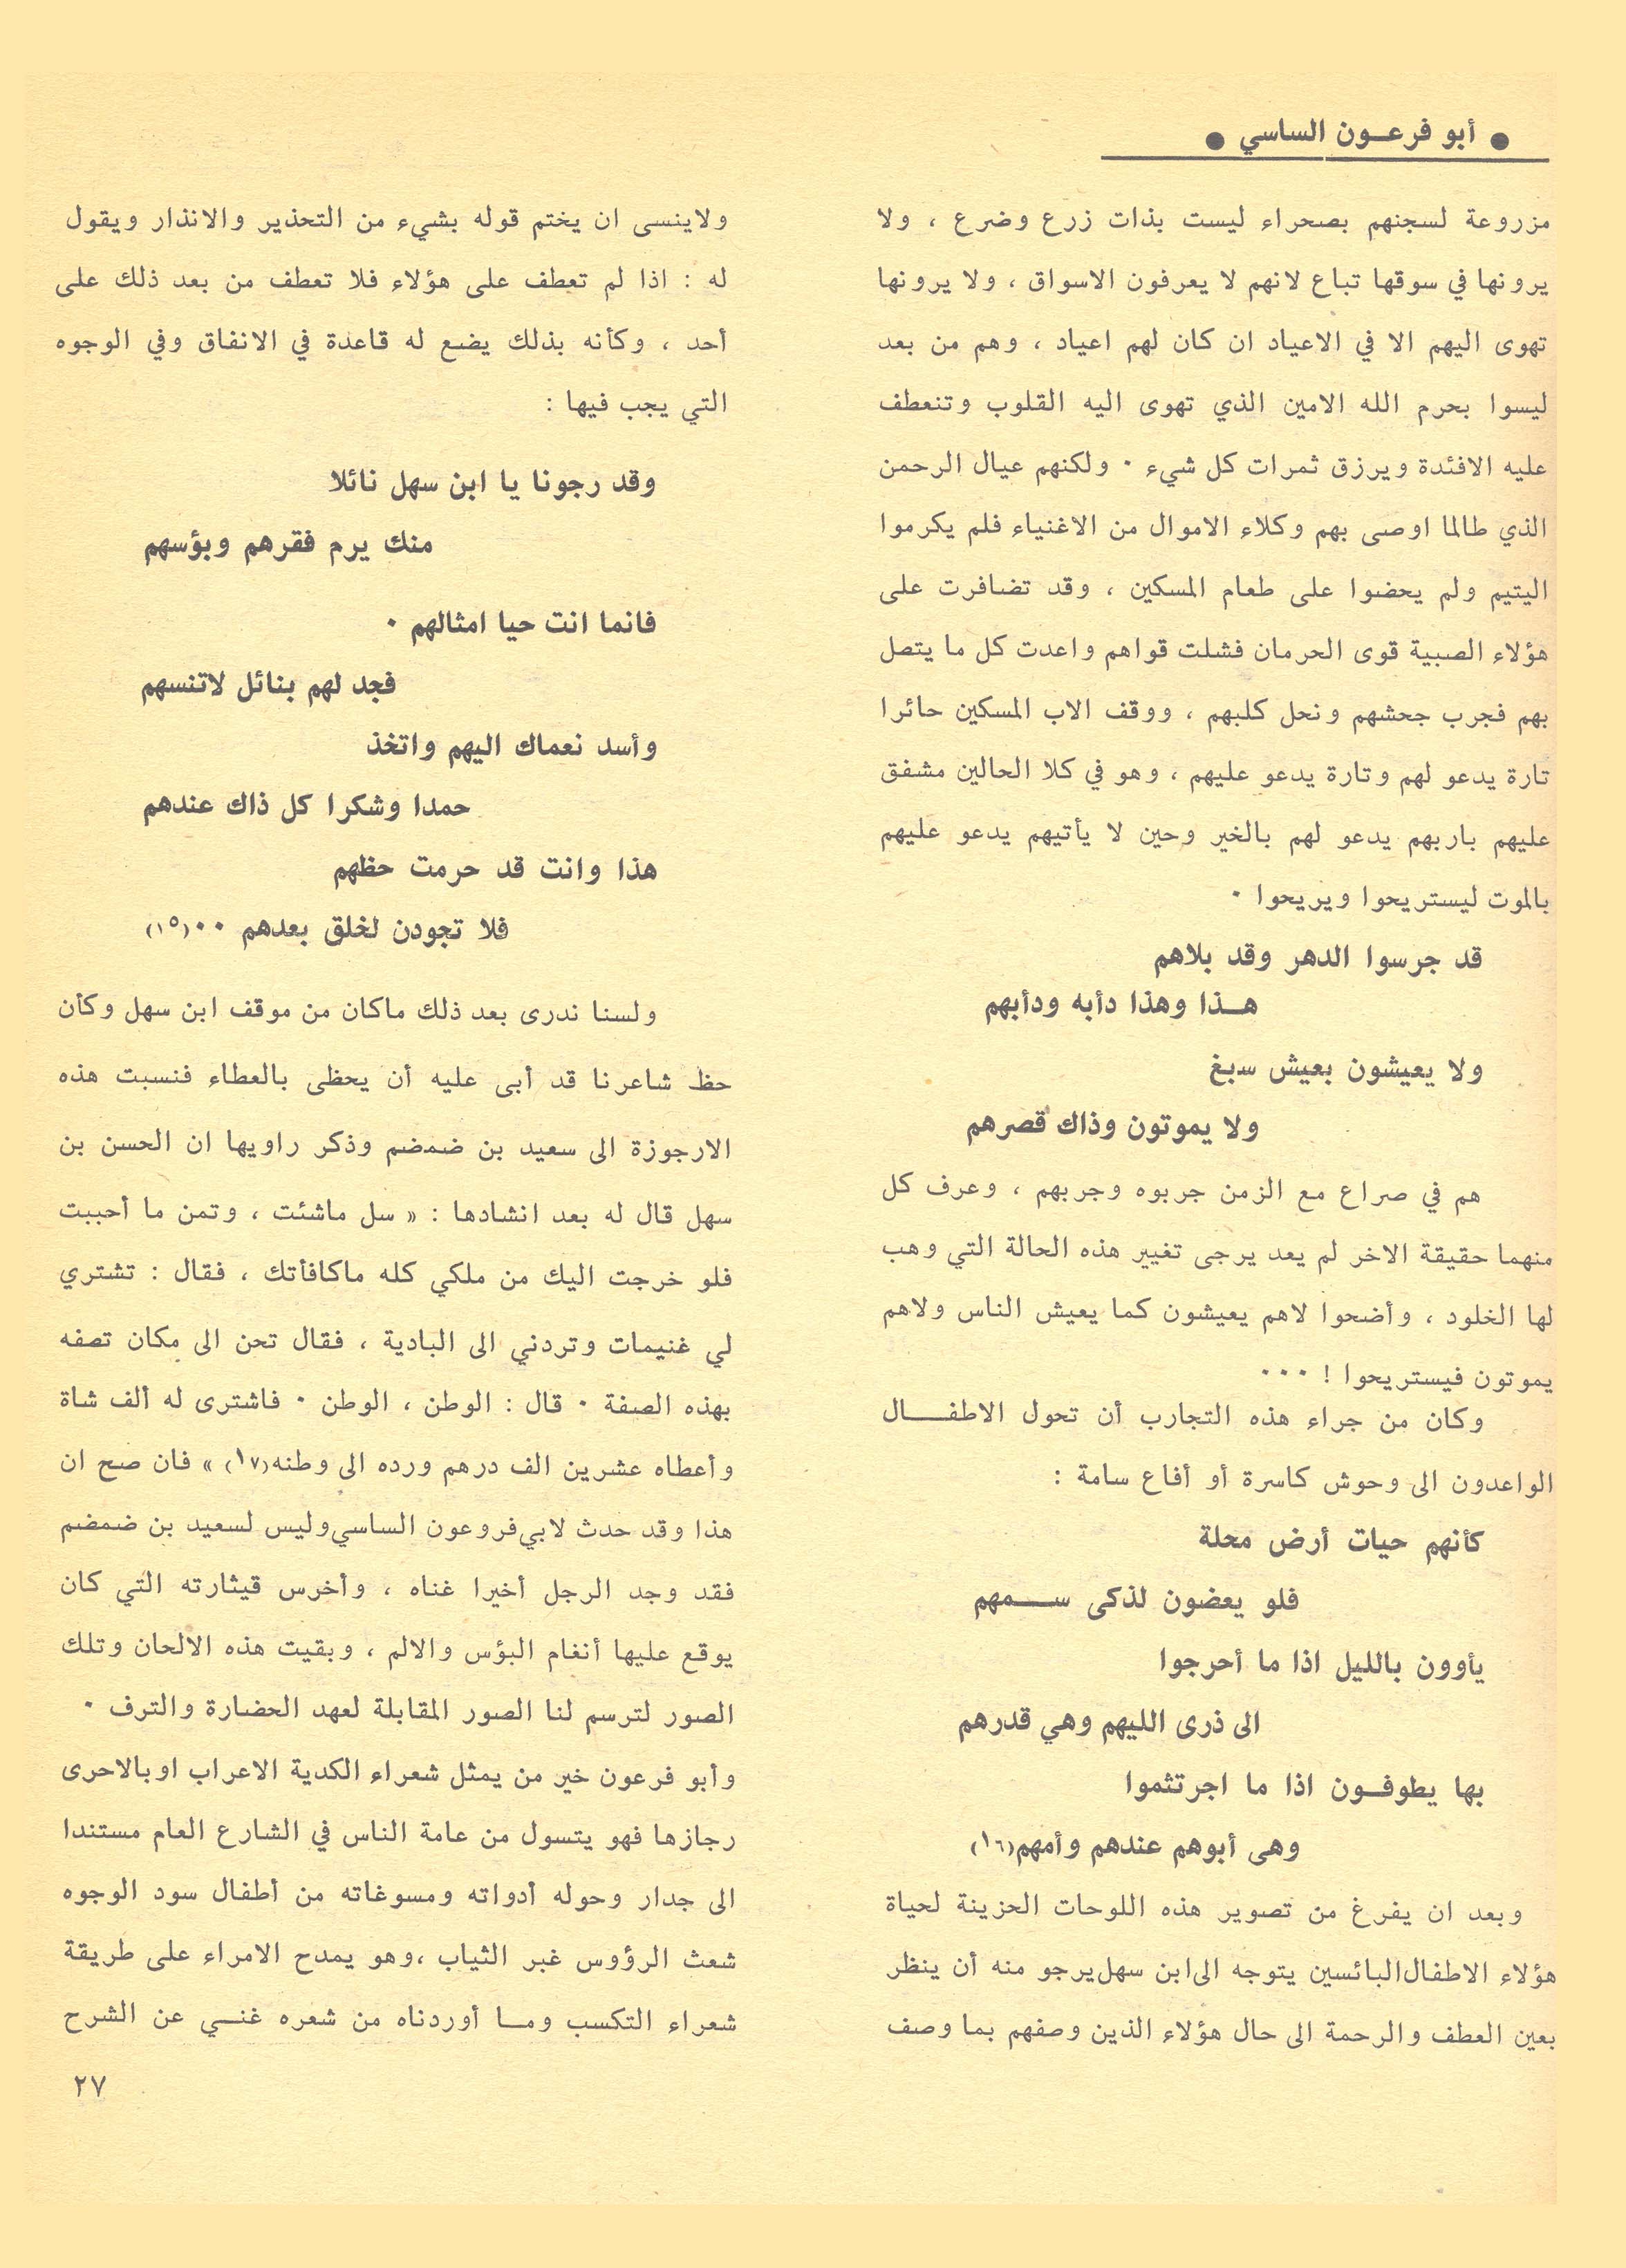 ● أبو فرعـون الساسي ●
مزروعة لسجنهم بصحراء ليست بذات زرع وضرع ، ولا
يرونها في سوقها تباع لانهم لا يعرفون الاسواق ، ولا يرونها
تهوى اليهم الا في الاعياد ان كان لهم اعياد ، وهم من بعد
ليسوا بحرم الله الامين الذي تهوى اليه القلوب وتنعطف
عليه الافئدة ويرزق ثمرات كل شيء ٠ ولكنهم عيال الرحمن
الذي طالما اوصى بهم وكلاء الاموال من الاغنياء فلم يكرموا
اليتيم ولم يحضوا على طعام المسكين ، وقد تضافرت على
هؤلاء الصبية قوى الحرمان فشلت قواهم واعدت كل ما يتصل
بهم فجرب جحشهم ونحل كلبهم ، ووقف الاب المسكين حائرا
تارة يدعو لهم وتارة يدعو عليهم ، وهو في كلا الحالين مشفق
عليهم باربهم يدعو لهم بالخير وحين لا يأتيهم يدعو عليهم
بالموت ليستريحوا ويريحوا ٠
قد جرسوا الدهر وقد بلاهم
هـذا وهذا دأبه ودأبهم
ولا يعيشون بعيش سبغ
ولا يموتون وذاك قصرهم
هم في صراع مع الزمن جربوه وجربهم ، وعرف كل
منهما حقيقة الاخر لم يعد يرجى تغيير هذه الحالة التي وهب
لها الخلود ، وأضحوا لاهم يعيشون كما يعيش الناس ولاهم
يموتون فيستريحوا ! ٠٠٠
وكان من جراء هذه التجارب أن تحول الاطفـــال
الواعدون الى وحوش كاسرة أو أفاع سامة :
كأنهم حيات أرض محلة
فلو يعضون لذكى ســـمهم
يأوون بالليل اذا ما أحرجوا
الى ذرى الليهم وهي قدرهم
بها يطوفـون اذا ما اجرتثموا
وهى أبوهم عندهم وأمهم(١٦)
وبعد ان يفرغ من تصوير هذه اللوحات الحزينة لحياة
هؤلاء الاطفال البائسين يتوجه الى ابن سهل يرجو منه أن ينظر
بعين العطف والرحمة الى حال هؤلاء الذين وصفهم بما وصف
ولاينسى ان يختم قوله بشيء من التحذير والانذار ويقول
له : اذا لم تعطف على هؤلاء فلا تعطف من بعد ذلك على
أحد ، وكأنه بذلك يضع له قاعدة في الانفاق وفي الوجوه
التي يجب فيها :
وقد رجونا يا ابن سهل نائلا
منك يرم فقرهم وبؤسهم
فانما انت حيا امثالهم ٠
فجد لهم بنائل لاتنسهم
وأسد نعماك اليهم واتخذ
حمدا وشكرا كل ذاك عندهم
هذا وانت قد حرمت حظهم
فلا تجودن لخلق بعدهم ٠٠(١٥)
ولسنا ندرى بعد ذلك ماكان من موقف ابن سهل وكأن
حظ شاعرنا قد أبى عليه أن يحظى بالعطاء فنسبت هذه
الارجوزة الى سعيد بن ضمضم وذكر راويها ان الحسن بن
سهل قال له بعد انشادها : « سل ماشئت ، وتمن ما أحببت
فلو خرجت اليك من ملكي كله ماكافأتك ، فقال : تشتري
لي غنيمات وتردني الى البادية ، فقال تحن الى مكان تصفه
بهذه الصفة ٠ قال : الوطن ، الوطن ٠ فاشترى له ألف شاة
وأعطاه عشرين الف درهم ورده الى وطنه(١٧) » فان صح ان
هذا وقد حدث لابي فروعون الساسي وليس لسعيد بن ضمضم
فقد وجد الرجل أخيرا غناه ، وأخرس قيثارته التي كان
يوقع عليها أنغام البؤس والالم ، وبقيت هذه الالحان وتلك
الصور لترسم لنا الصور المقابلة لعهد الحضارة والترف ٠
وأبو فرعون خير من يمثل شعراء الكدية الاعراب اوبالاحرى
رجازها فهو يتسول من عامة الناس في الشارع العام مستندا
الى جدار وحوله أدواته ومسوغاته من أطفال سود الوجوه
شعث الرؤوس غبر الثياب ،وهو يمدح الامراء على طريقة
شعراء التكسب ومـا أوردناه من شعره غنـي عن الشرح
٢٧